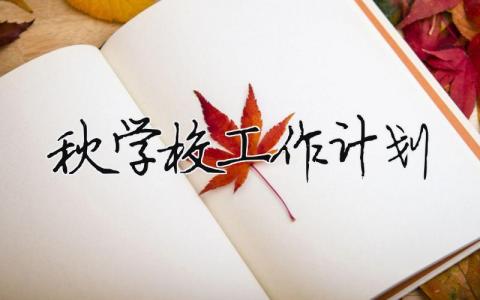 秋学校工作计划